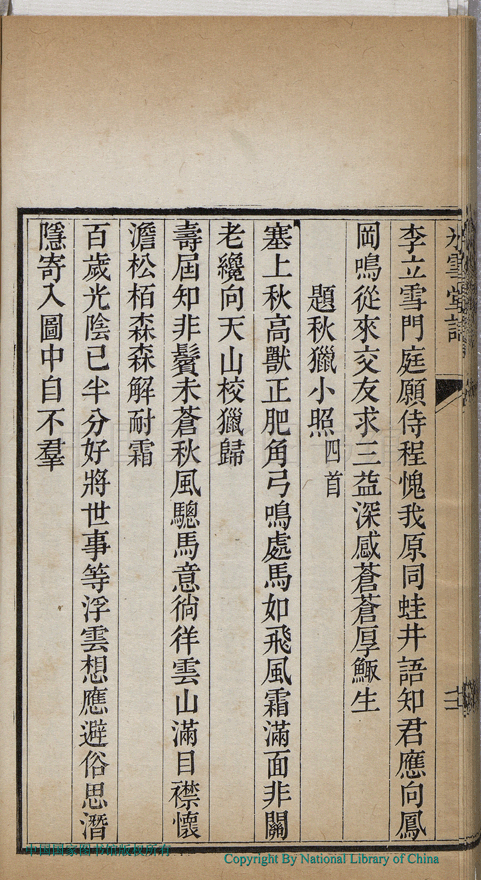 李立雪門庭願侍程愧我原同蛙井語知君應向鳳
岡鳴從來交友求三益深感蒼蒼厚鯫生
題秋獵小照四首
塞上秋高獸正肥角弓鳴處馬如飛風霜滿面非關
老纔向天山校獵歸
壽屆知非鬢未蒼秋風驄馬意徜徉雲山滿目襟懷
澹松栢森森解耐霜
百歲光陰已半分好將世事等浮雲想應避俗思潛
隱寄入圖中自不羣
中国國家图书馆版权所有
Copyright By National Library of China